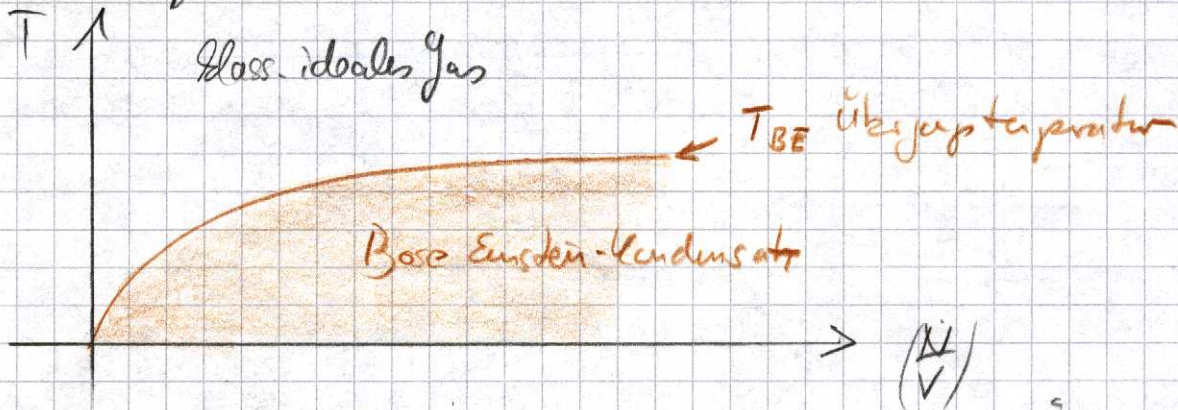 T
klass. ideales Gas
T_BE Übergangstemperatur
Bose Einstein-Kondensat
(N/V)